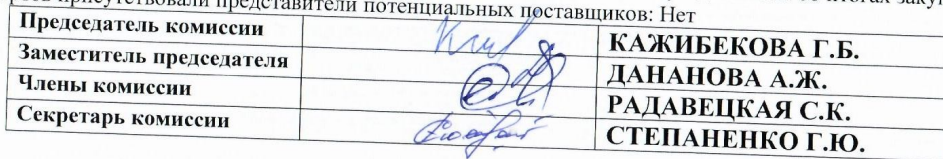 присутствовали представители потенциальных поставщиков: Нет
Председатель комиссии КАЖИБЕКОВА Г.Б.
Заместитель председателя ДАНАНОВА А.Ж.
Члены комиссии РАДАВЕЦКАЯ С.К.
Секретарь комиссии СТЕПАНЕНКО Г.Ю.